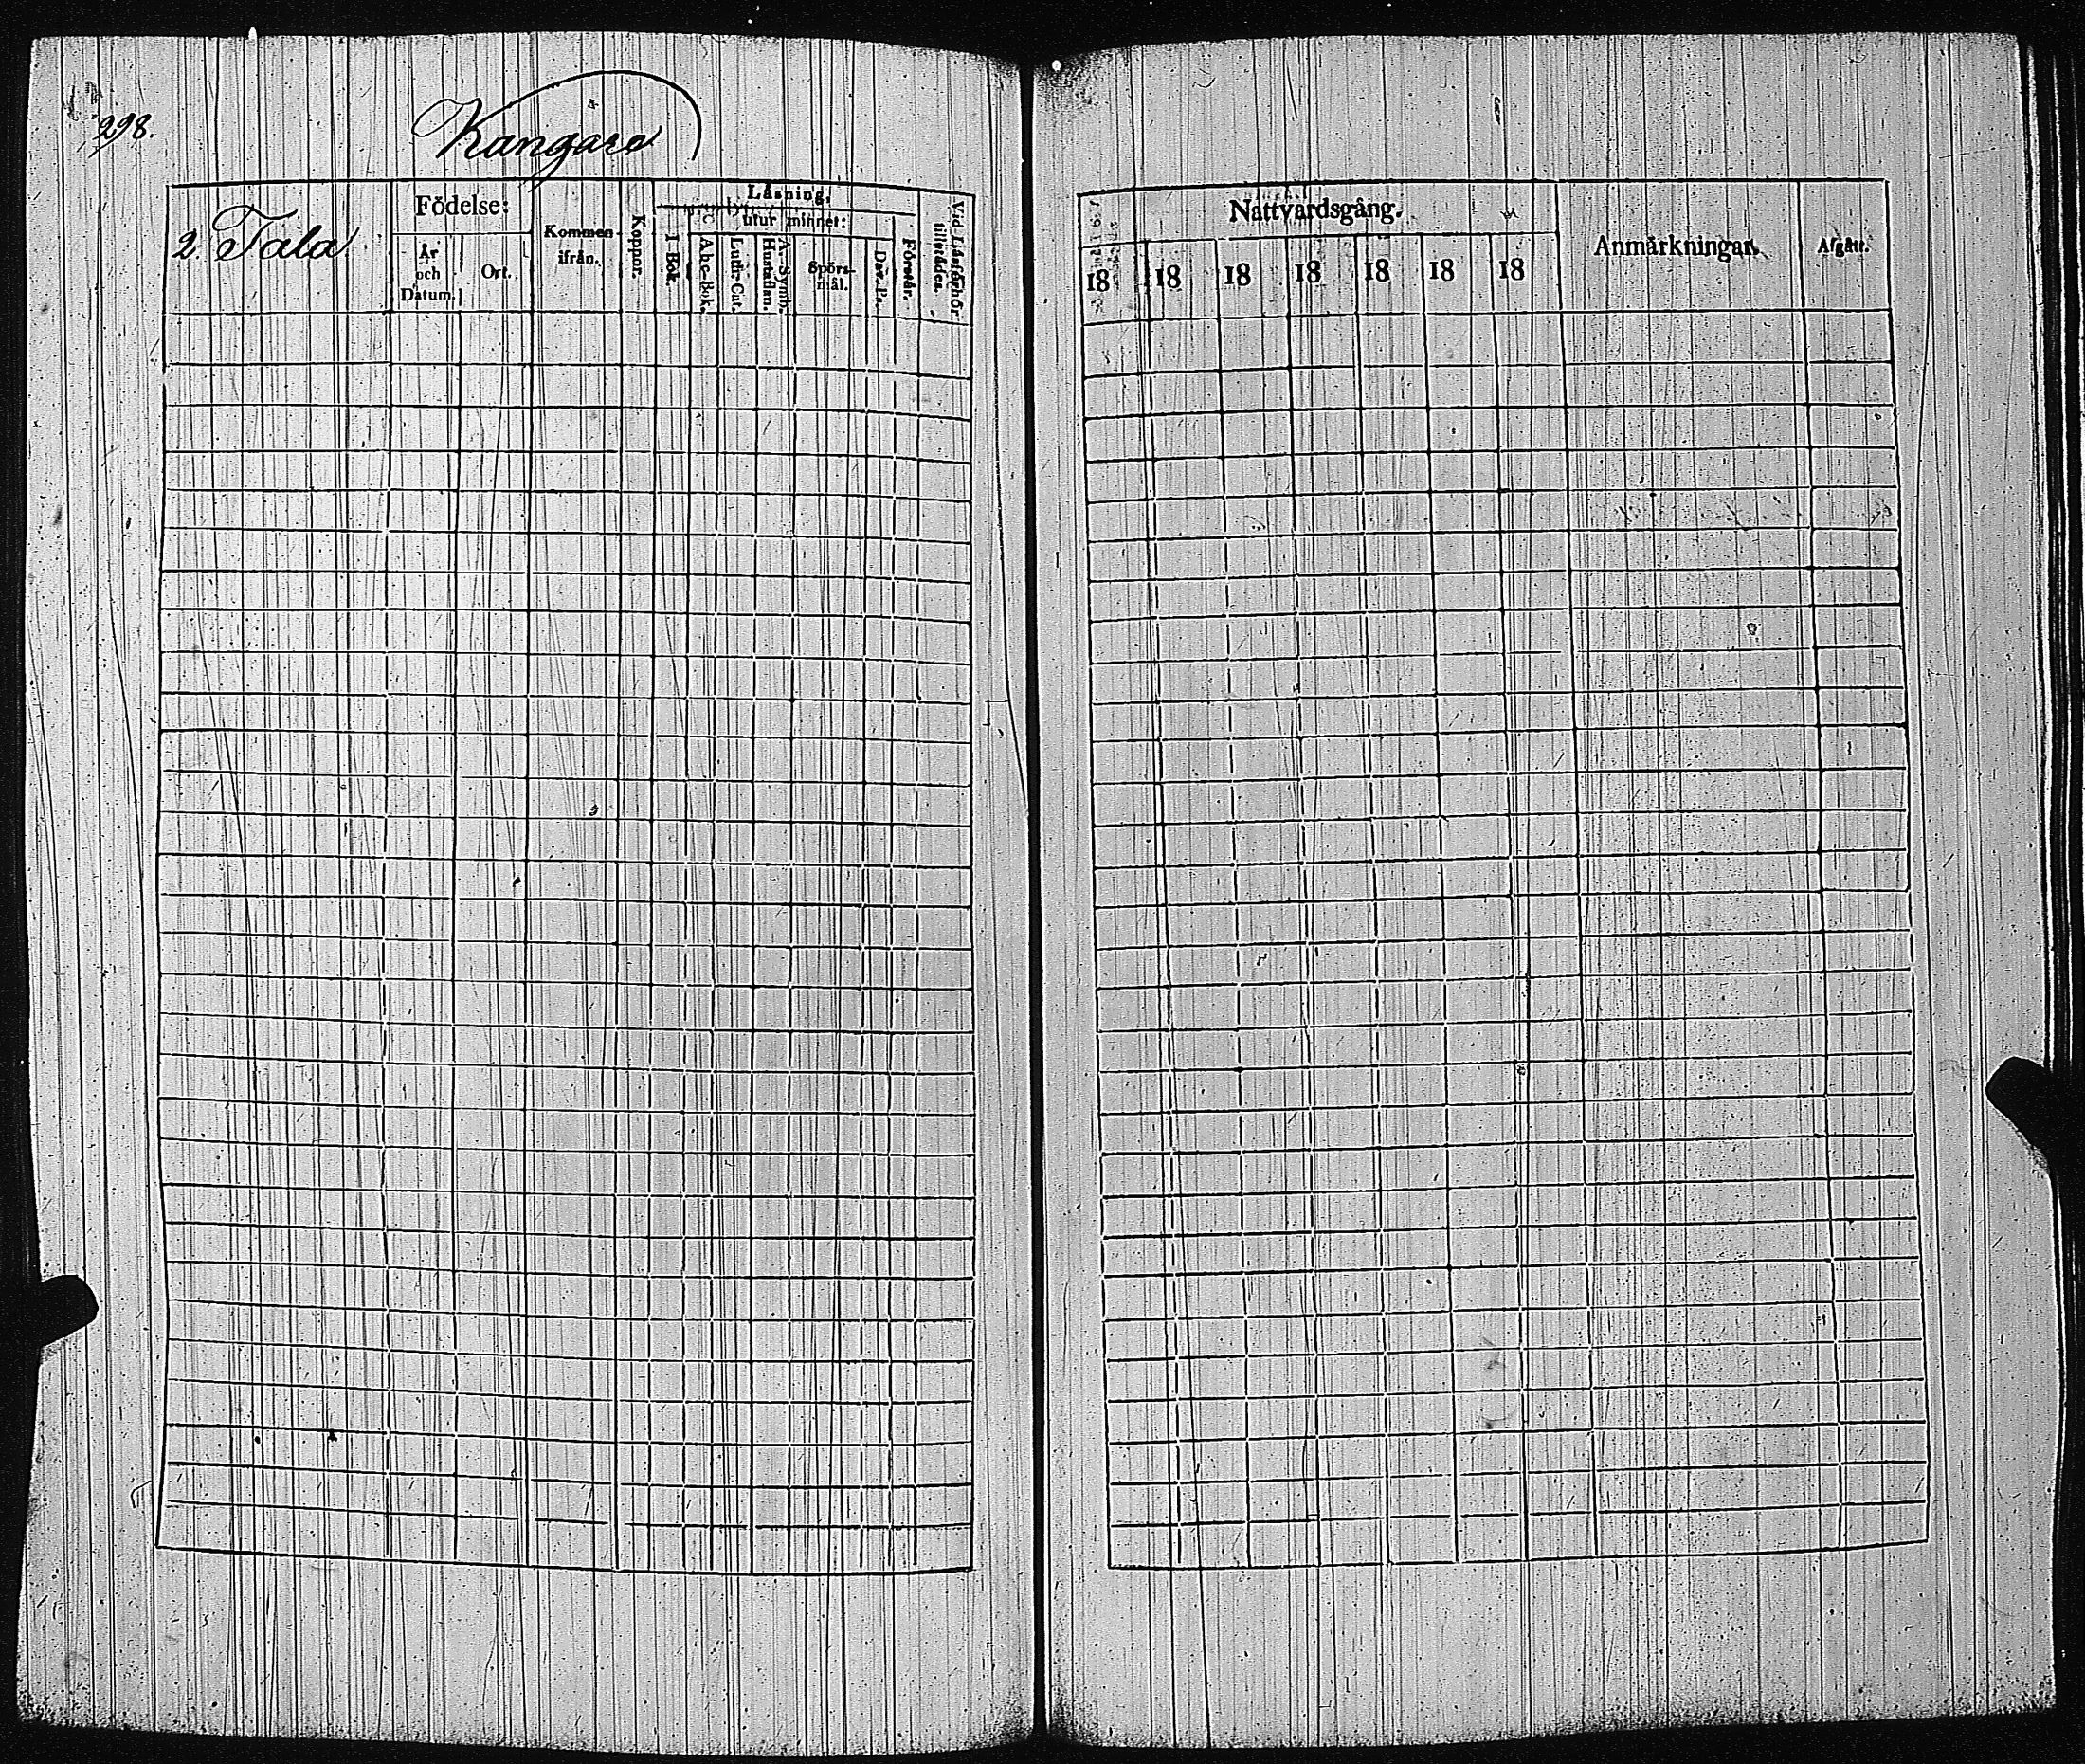 298.
Kangara
2. Tala
Födelse:
År
och
Datum.
Ort.
Kommen
ifrån.
Koppor.
Läsning.
utur minnet:
I Bok.
Abc-Bok.
Luth. Cat.
Hustaflan.
A. Symb.
Spörs-
mål.
Dav. Ps.
Förstår.
Vid Läsförhör
tillstädes.
Nattvardsgång.
18 18 18 18 18 18 18
Anmärkningar.
Afgått.